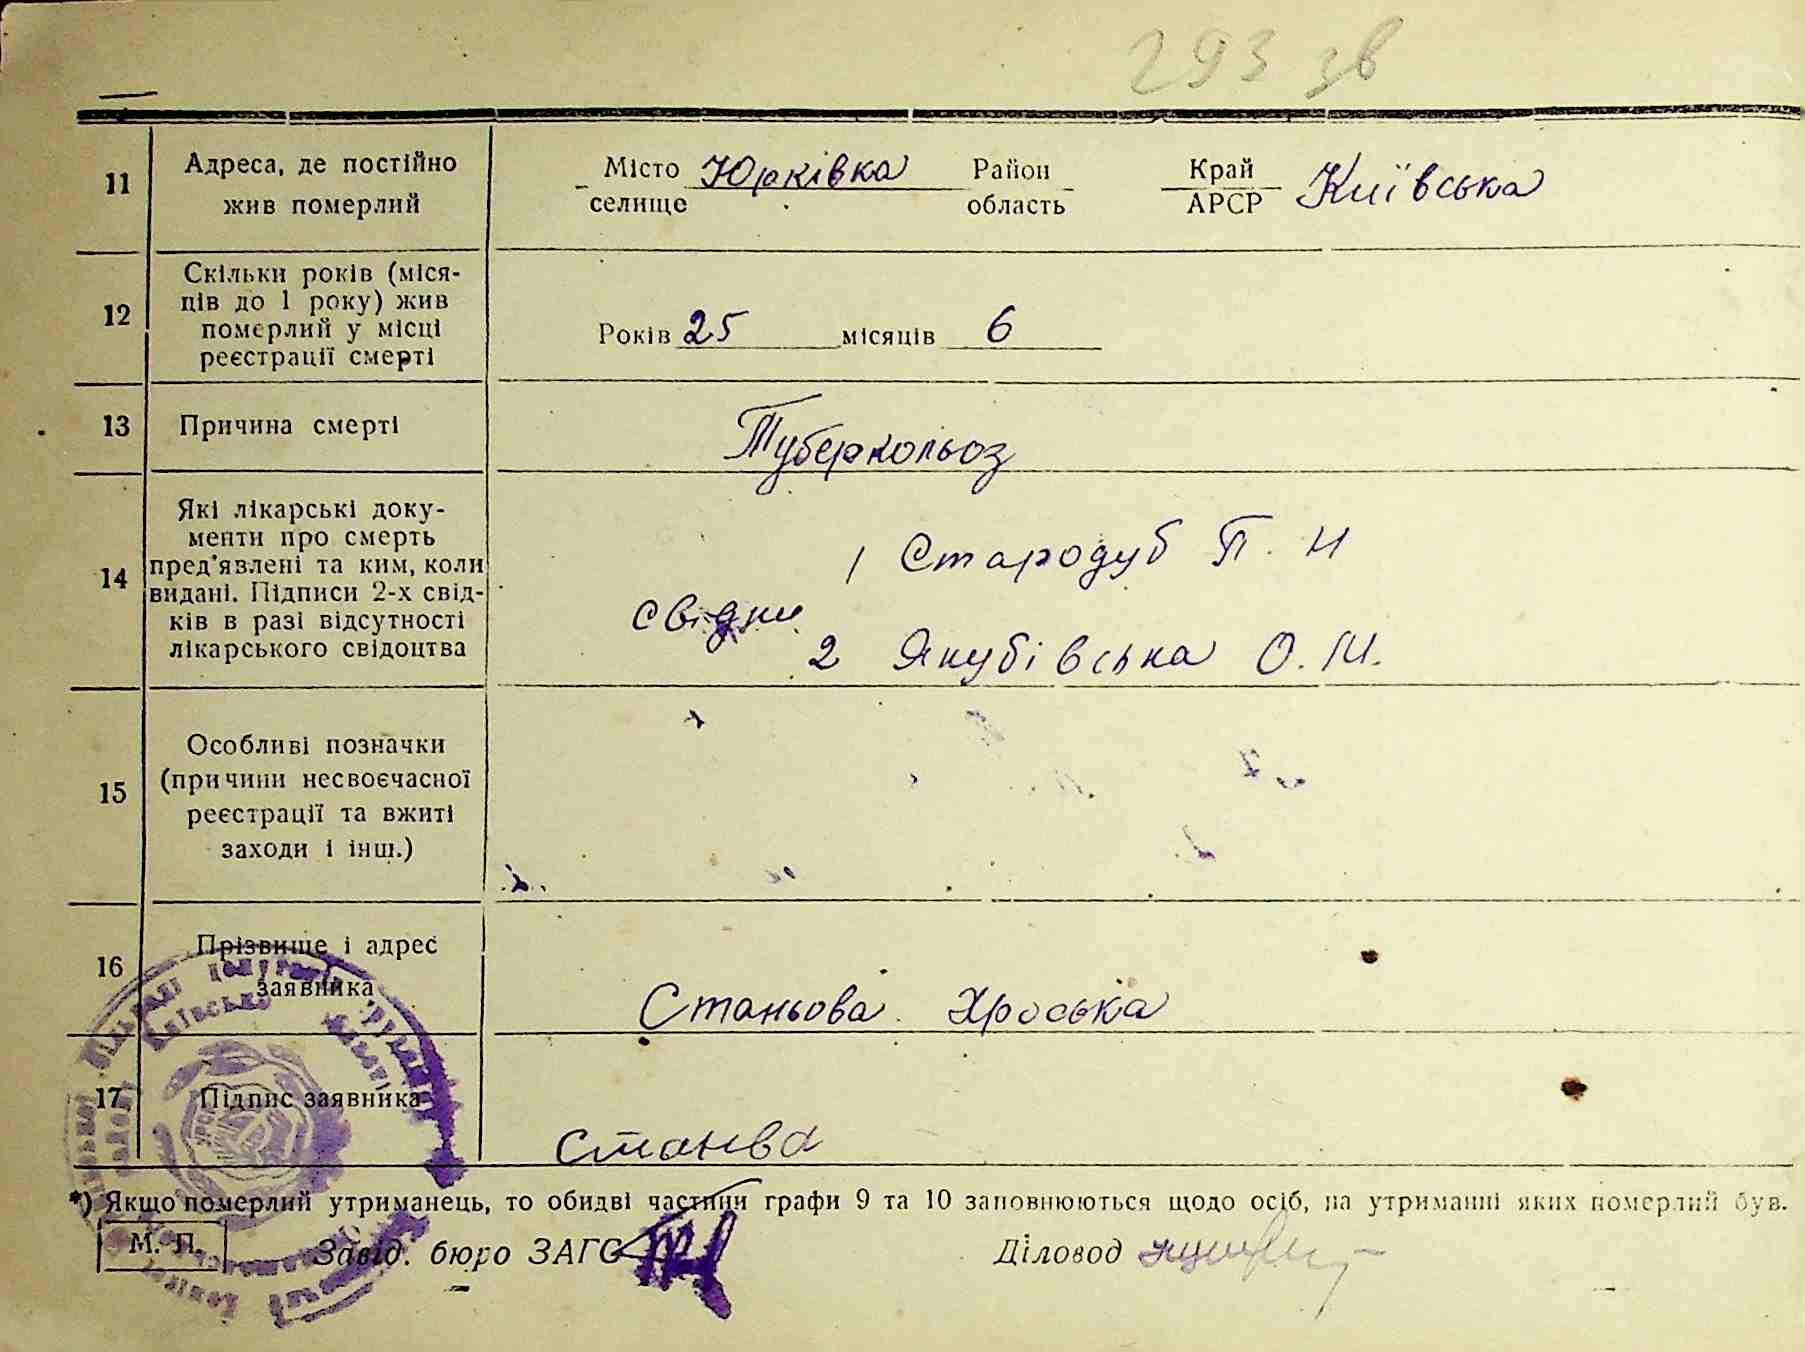 293 зв
11 Адреса, де постійно жив померлий
Місто селище Юрківка Район область Край АРСР Київська
12 Скільки років (міся-
ців до 1 року) жив
померлий у місці
реєстрації смерті
Років 25 місяців 6
13 Причина смерті
Туберкольоз
14 Які лікарські доку-
менти про смерть
пред'явлені та ким, коли
видані. Підписи 2-х свід-
ків в разі відсутності
лікарського свідоцтва
свідки
1 Стародуб П. Н
2 Якубівська О. М.
15 Особливі позначки
(причини несвоєчасної
реєстрації та вжиті
заходи і інш.)
16 Прізвище і адрес
заявника
Станьова Хроська
17 Підпис заявника
Станва
*) Якщо померлий утриманець, то обидві частини графи 9 та 10 заповнюються щодо осіб, на утриманні яких померлий був.
М. П. Завід. бюро ЗАГС Діловод